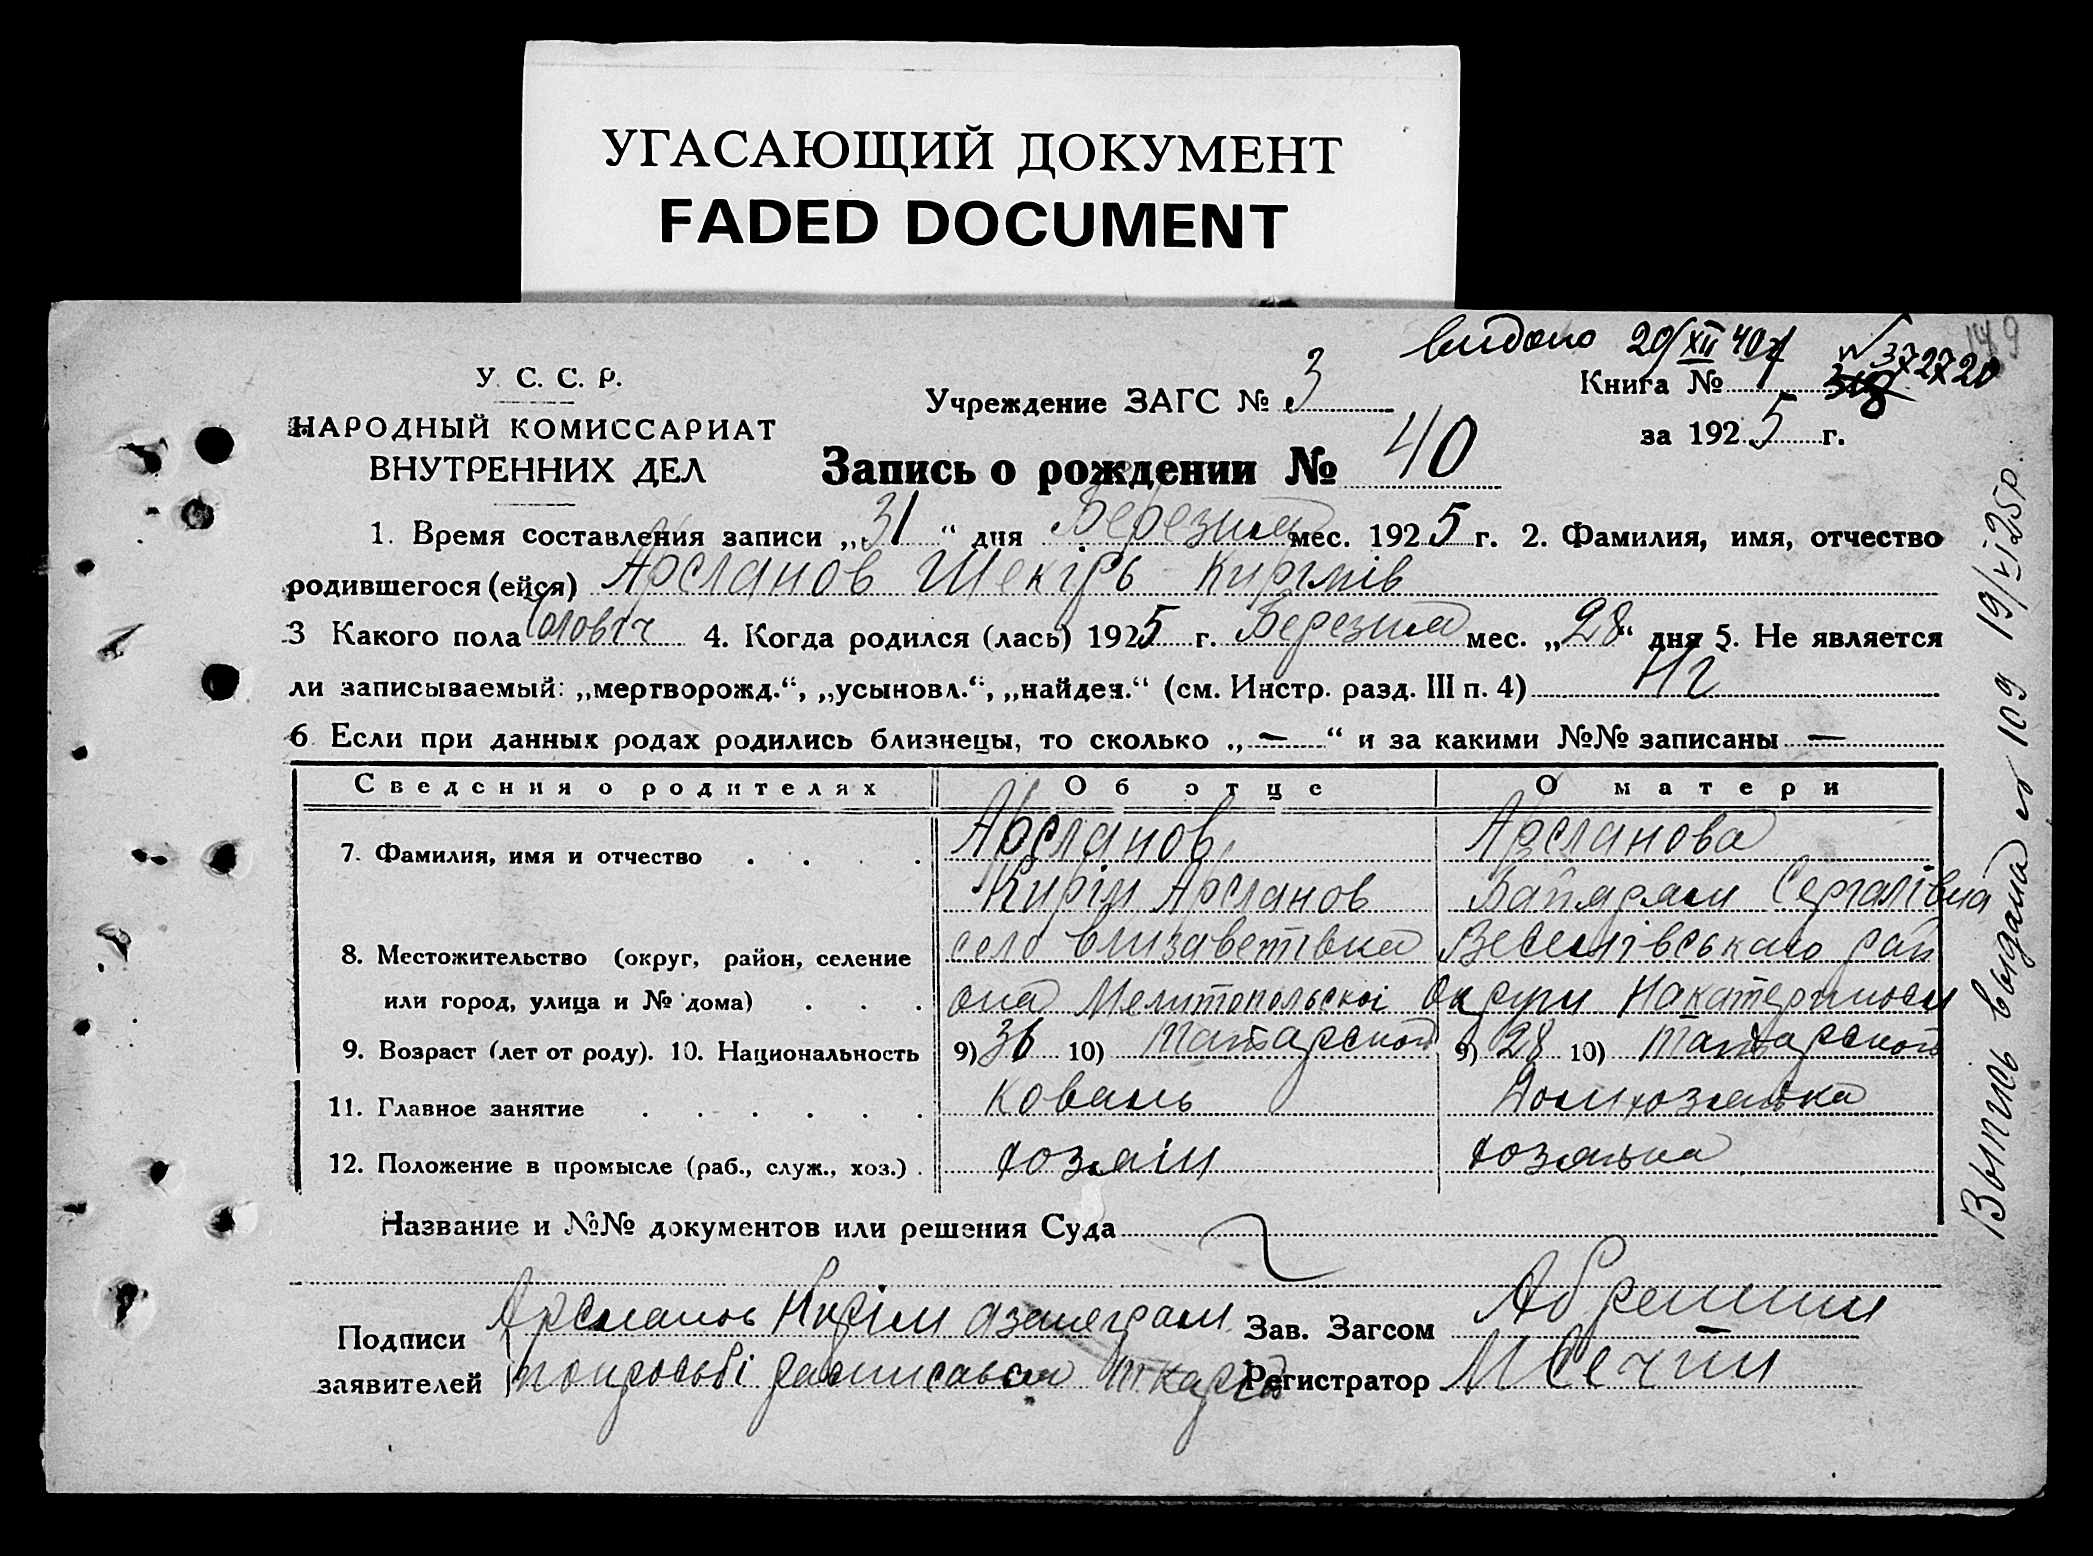 УГАСАЮЩИЙ ДОКУМЕНТ
FADED DOCUMENT
видано 29/XII 40 № 372720
149
У. С. С. Р.
НАРОДНЫЙ КОМИССАРИАТ
ВНУТРЕННИХ ДЕЛ
Учреждение ЗАГС № 3
Книга № 1
за 1925 г.
Запись о рождении № 40
1. Время составления записи „31“ дня Березня мес. 1925 г. 2. Фамилия, имя, отчество
родившегося (ейся) Арсланов Шекірь Кирімів
3 Какого пола Чоловіч 4. Когда родился (лась) 1925 г. Березня мес. „28“ дня 5. Не является
ли записываемый: „мертворожд.“, „усыновл.“, „найден.“ (см. Инстр. разд. III п. 4) Ні
6 Если при данных родах родились близнецы, то сколько „—“ и за какими №№ записаны —
Сведения о родителях Об отце О матери
7. Фамилия, имя и отчество Арсланов Арсланова
Кирім Арсланов Сергалівна
8. Местожительство (округ, район, селение село Єлизаветівка Веселівського рай
или город, улица и № дома) она Мелитопольскої Округи
9. Возраст (лет от роду). 10. Национальность 9) 36 10) Татарской 9) 28 10) Татарской
11. Главное занятие коваль Домхозяйка
12. Положение в промысле (раб., служ., хоз.) хозяін хозяйка
Название и №№ документов или решения Суда
Подписи Арсланов Кирім Зав. Загсом
заявителей попросьбі расписався Регистратор
Выпись выдана № 109 19/VI 25р.